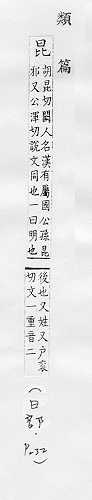 類篇
昆
胡昆切闕人名漢有屬國公孫昆
邪又公渾切說文同也一曰明也
後也又姓又戶袞
切文一重音二
(日部·P.232)